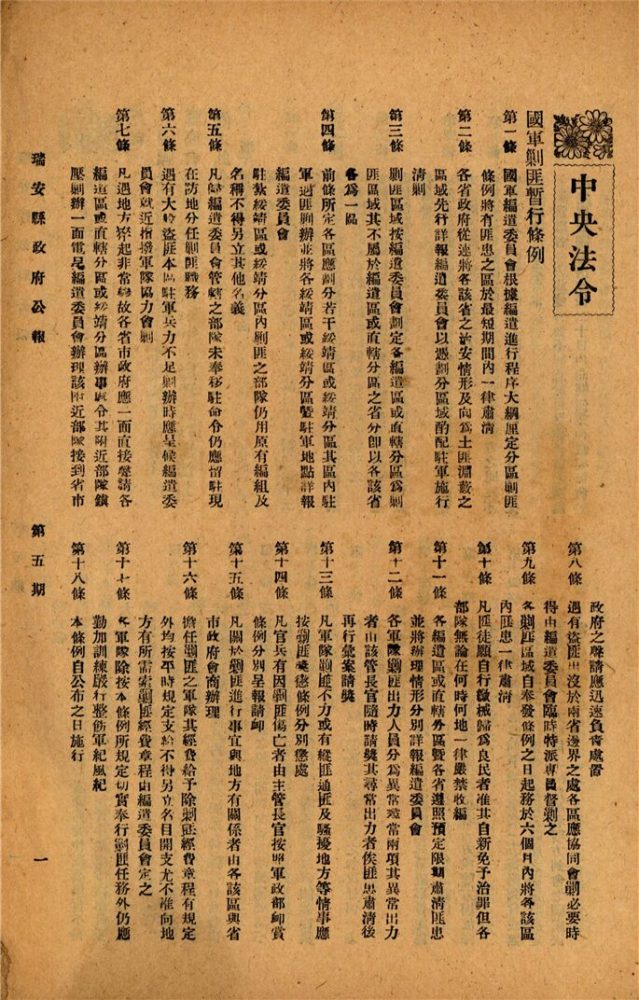 中央法令
國軍剿匪暫行條例
第一條　國軍編遣委員會根據編遣進行程序大綱厘定分區剿匪
條例將有匪患之區於最短期間內一律肅清
第二條　各省政府從速將各該省之治安情形及向為土匪淵藪之
區域先行詳報編遣委員會以憑劃分區域酌配駐軍施行
清剿
第三條　剿匪區域按編遣委員會劃定各編遣區或直轄分區為剿
匪區域其不屬於編遣區或直轄分區之省分即以各該省
各為一區
第四條　前條所定各區應劃分若干綏靖區或綏靖分區其區內駐
軍遇匪剿辦並將各綏靖區或綏靖分區暨駐軍地點詳報
編遣委員會
駐紮綏靖區或綏靖分區內剿匪之部隊仍用原有編組及
名稱不得另立其他名義
第五條　凡歸編遣委員會管轄之部隊未奉移駐命令仍應留駐現
在防地分任剿匪職務
第六條　遇有大股盜匪本區駐軍兵力不足剿辦時應呈候編遣委
員會就近指撥軍隊協力會剿
第七條　凡遇地方猝起非常事故各省市政府應一面直接聲請各
編遣區或直轄分區或綏靖分區辦事處令其附近部隊鎮
壓剿辦一面電呈編遣委員會辦理該附近部隊接到省市
政府之聲請應迅速負責處置
第八條　遇有盜匪出沒於兩省邊界之處各區應協同會剿必要時
得由編遣委員會臨時特派專員督剿之
第九條　各剿匪區域自奉發條例之日起務於六個月內將各該區
內匪患一律肅清
第十條　凡匪徒願自行繳械歸為良民者准其自新免予治罪但各
部隊無論在何時何地一律嚴禁收編
第十一條　各編遣區或直轄分區暨各省遵照預定限期肅清匪患
並將辦理情形分別詳報編遣委員會
第十二條　各軍隊剿匪出力人員分為異常尋常兩項其異常出力
者由該管長官隨時請獎其尋常出力者俟匪患肅清後
再行彙案請獎
第十三條　凡軍隊剿匪不力或有縱匪通匪及騷擾地方等情事應
按剿匪獎懲條例分別懲處
第十四條　凡官兵有因剿匪傷亡者由主管長官按照軍政部卹賞
條例分別呈報請卹
第十五條　凡關於剿匪進行事宜與地方有關係者由各該區與省
市政府會商辦理
第十六條　擔任剿匪之軍隊其經費給予除剿匪經費章程有規定
外均按平時規定支給不得另立名目開支尤不准向地
方有所需索剿匪經費章程由編遣委員會定之
第十七條　各軍隊除按本條例所規定切實奉行剿匪任務外仍應
勤加訓練嚴行整飭軍紀風紀
第十八條　本條例自公布之日施行
瑞安縣政府公報　第五期　一